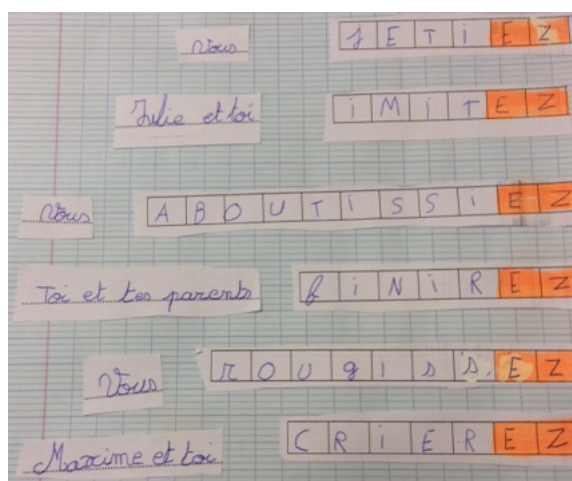 Vous JETIEZ
Julie et toi iMiTEZ
Vous ABOUTiSSiEZ
Toi et tes parents fiNiREZ
Vous rougiss.EZ
Maxime et toi CRiEREZ